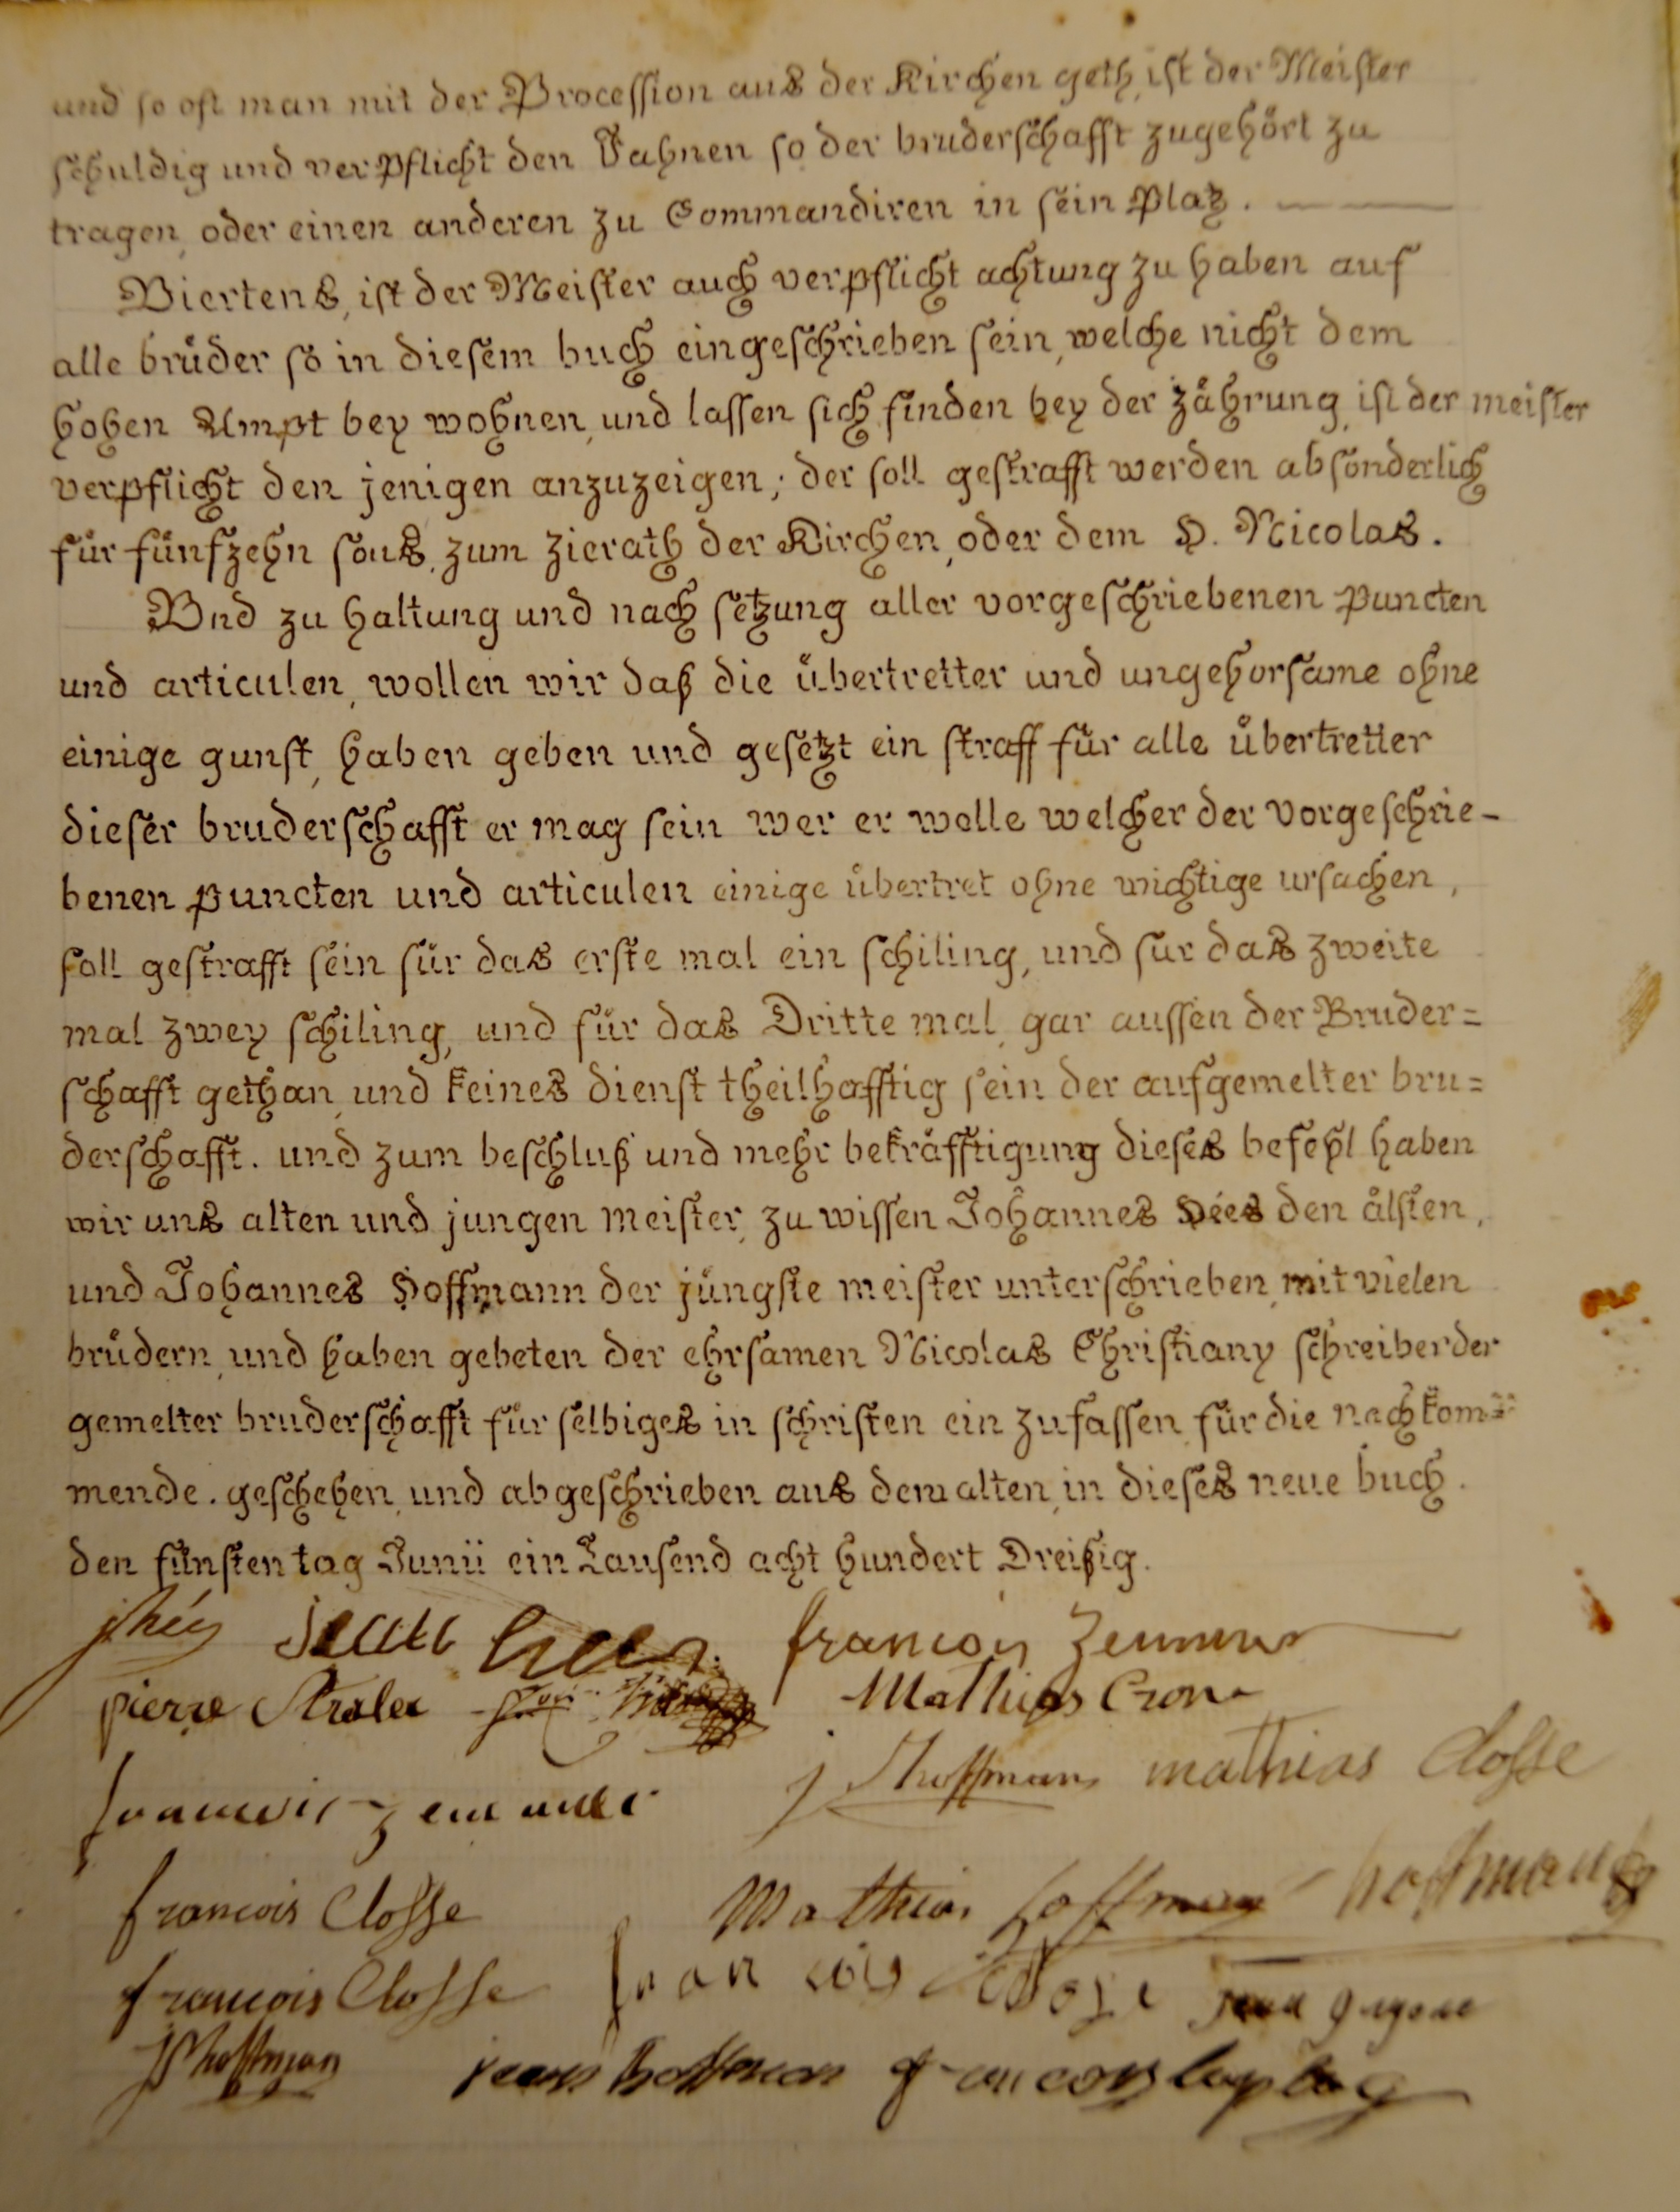 und so oft man mit der Procession aus der Kirchen geth, ist der Meister
schuldig und verpflicht den Fahnen so der bruderschafft zugehört zu
tragen, oder einen anderen zu Commandiren in sein Platz.
Viertens, ist der Meister auch verpflicht achtung zu haben auf
alle brüder so in diesem buch eingeschrieben sein, welche nicht dem
hohen Ampt bey wohnen, und lassen sich finden bey der zährung, ist der meister
verpflicht den jenigen anzuzeigen; der soll gestrafft werden absonderlich
für fünfzehn sous, zum zierath der Kirchen, oder dem H. Nicolas.
Vnd zu haltung und nach setzung aller vorgeschriebenen puncten
und articulen, wollen wir daß die übertretter und ungehorsame ohne
einige gunst, haben geben und gesetzt ein straff für alle übertretter
dieser bruderschafft er mag sein wer er wolle welcher der vorgeschrie-
benen puncten und articulen einige übertret ohne wichtige ursachen,
soll gestrafft sein für das erste mal ein schiling, und für das zweite
mal zwey schiling, und für das Dritte mal, gar aussen der Bruder=
schafft gethan, und keines dienst theilhafftig sein der aufgemelter bru=
derschafft. und zum beschluß und mehr bekräfftigung dieses befehl haben
wir uns alten und jungen meister, zu wissen Johannes Hées den älsten,
und Johannes Hoffmann der jüngste meister unterschrieben, mit vielen
brüdern, und haben gebeten der ehrsamen Nicolas Christiany schreiber der
gemelter bruderschafft für selbiges in schriften ein zufassen für die nachkom=
mende. geschehen, und abgeschrieben aus dem alten, in dieses neue buch.
den fünften tag Junii ein Tausend acht hundert Dreißig.
jhées Jean hees francois Zemmer
pierre Mathias Cron
francois j hoffmann mathias Closse
francois Closse Mathias hoffman hoffmann
francois Closse francois Jean
JPhoffman jean hoffman francois